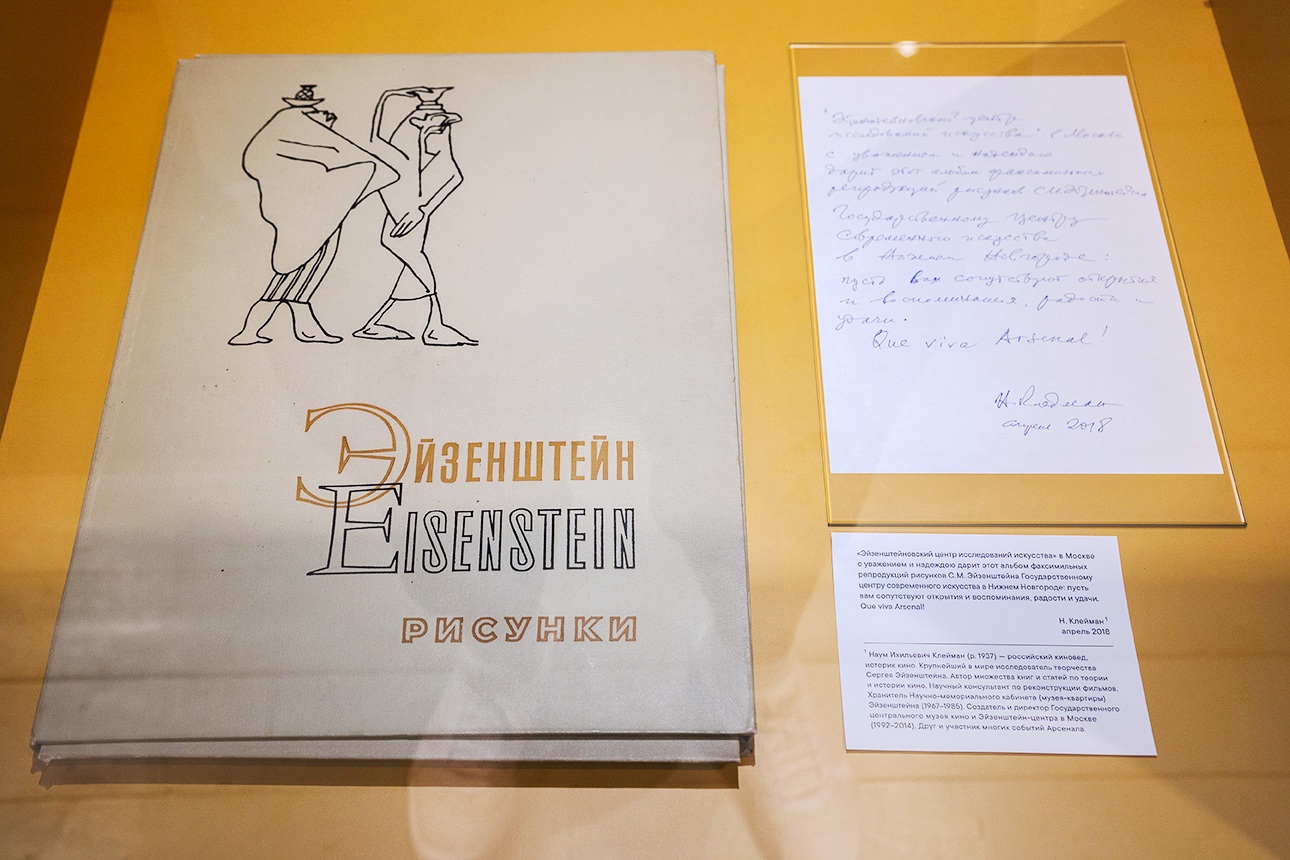 Эйзенштейн
Eisenstein
РИСУНКИ
"Эйзенштейновский центр
исследований искусства" в Москве
с уважением и надеждою
дарит этот альбом факсимильных
репродукций рисунков С.М. Эйзенштейна
Государственному центру
современного искусства
в Нижнем Новгороде:
пусть вам сопутствуют открытия
и воспоминания, радости и
удачи.
Que viva Arsenal!
Н. Клейман
апрель 2018
«Эйзенштейновский центр исследований искусства» в Москве
с уважением и надеждою дарит этот альбом факсимильных
репродукций рисунков С.М. Эйзенштейна Государственному
центру современного искусства в Нижнем Новгороде: пусть
вам сопутствуют открытия и воспоминания, радости и удачи.
Que viva Arsenal!
Н. Клейман ¹
апрель 2018
¹ Наум Ихильевич Клейман (р. 1937) — российский киновед,
историк кино. Крупнейший в мире исследователь творчества
Сергея Эйзенштейна. Автор множества книг и статей по теории
и истории кино. Научный консультант по реконструкции фильмов.
Хранитель Научно-мемориального кабинета (музея-квартиры)
Эйзенштейна (1967–1985). Создатель и директор Государственного
центрального музея кино и Эйзенштейн-центра в Москве
(1992–2014). Друг и участник многих событий Арсенала.